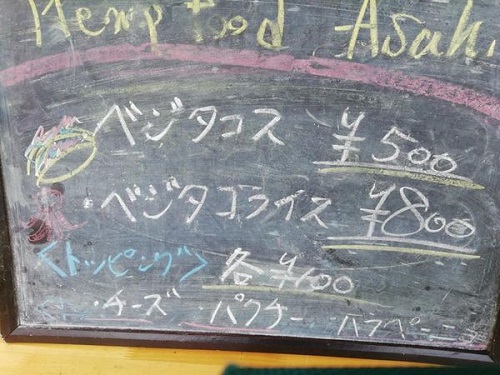 Hemp food Asahi
ベジタコス ¥500
・ベジタコライス ¥800
<トッピング> 各¥100
・チーズ ・パクチー ハラペーニョ